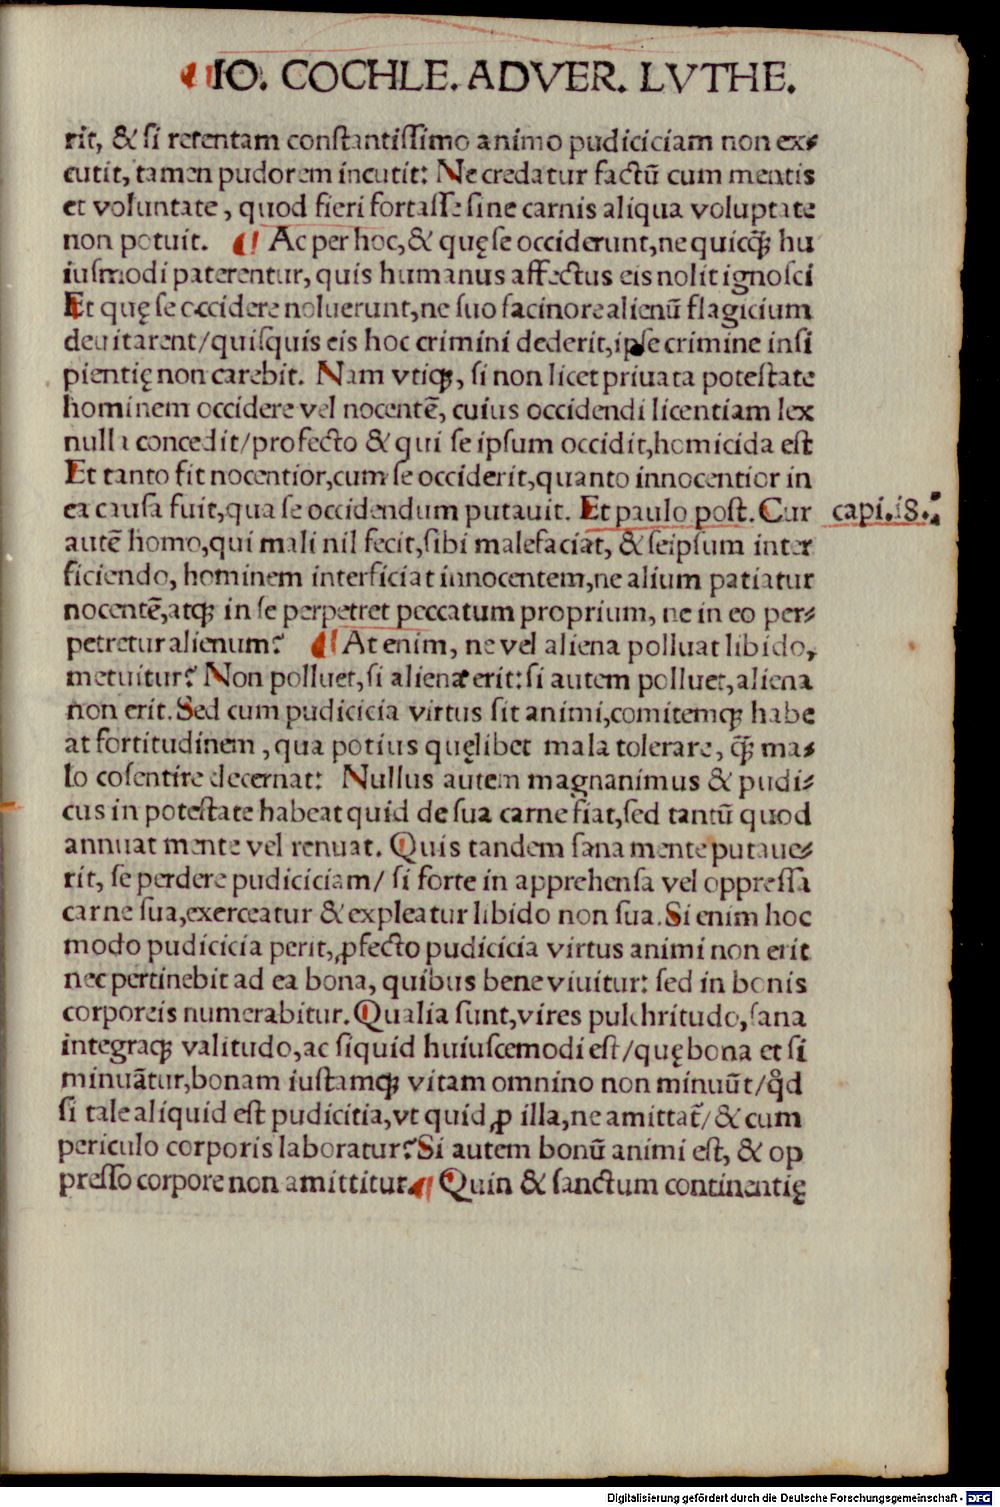 IO. COCHLE. ADVER. LVTHE.
rit, & si retentam constantissimo animo pudiciciam non ex⸗
cutit, tamen pudorem incutit: Ne credatur factū cum mentis
et voluntate, quod fieri fortasse sine carnis aliqua voluptate
non potuit. ¶ Ac per hoc, & quę se occiderunt, ne quicq̃ꝫ hu
iusmodi paterentur, quis humanus affectus eis nolit ignosci
Et quę se occidere noluerunt, ne suo facinore alienū flagicium
deuitarent/ quisquis eis hoc crimini dederit, ipse crimine insi
pientię non carebit. Nam vtiqꝫ, si non licet priuata potestate
hominem occidere vel nocentē, cuius occidendi licentiam lex
nulla concedit/ profecto & qui se ipsum occidit, homicida est
Et tanto fit nocentior, cum se occiderit, quanto innocentior in
ea causa fuit, qua se occidendum putauit. Et paulo post. Cur
capi. 18.
autē homo, qui mali nil fecit, sibi malefaciat, & seipsum inter
ficiendo, hominem interficiat innocentem, ne alium patiatur
nocentē, atqꝫ in se perpetret peccatum proprium, ne in eo per⸗
petretur alienum? ¶ At enim, ne vel aliena polluat libido,
metuitur? Non polluet, si aliena erit: si autem polluet, aliena
non erit. Sed cum pudicicia virtus sit animi, comitemqꝫ habe
at fortitudinem, qua potius quęlibet mala tolerare, q̃ꝫ ma⸗
lo cosentire decernat: Nullus autem magnanimus & pudi⸗
cus in potestate habeat quid de sua carne fiat, sed tantū quod
annuat mente vel renuat. Quis tandem sana mente putaue⸗
rit, se perdere pudiciciam/ si forte in apprehensa vel oppressa
carne sua, exerceatur & expleatur libido non sua. Si enim hoc
modo pudicicia perit, ꝓfecto pudicicia virtus animi non erit
nec pertinebit ad ea bona, quibus bene viuitur: sed in bonis
corporeis numerabitur. Qualia sunt, vires pulchritudo, sana
integraqꝫ valitudo, ac siquid huiuscemodi est/ quę bona et si
minuātur, bonam iustamqꝫ vitam omnino non minuūt/ qd̊
si tale aliquid est pudicitia, vt quid ꝓ illa, ne amittat̃/ & cum
periculo corporis laboratur? Si autem bonū animi est, & op
presso corpore non amittitur. ¶ Quin & sanctum continentię
Digitalisierung gefördert durch die Deutsche Forschungsgemeinschaft - DFG